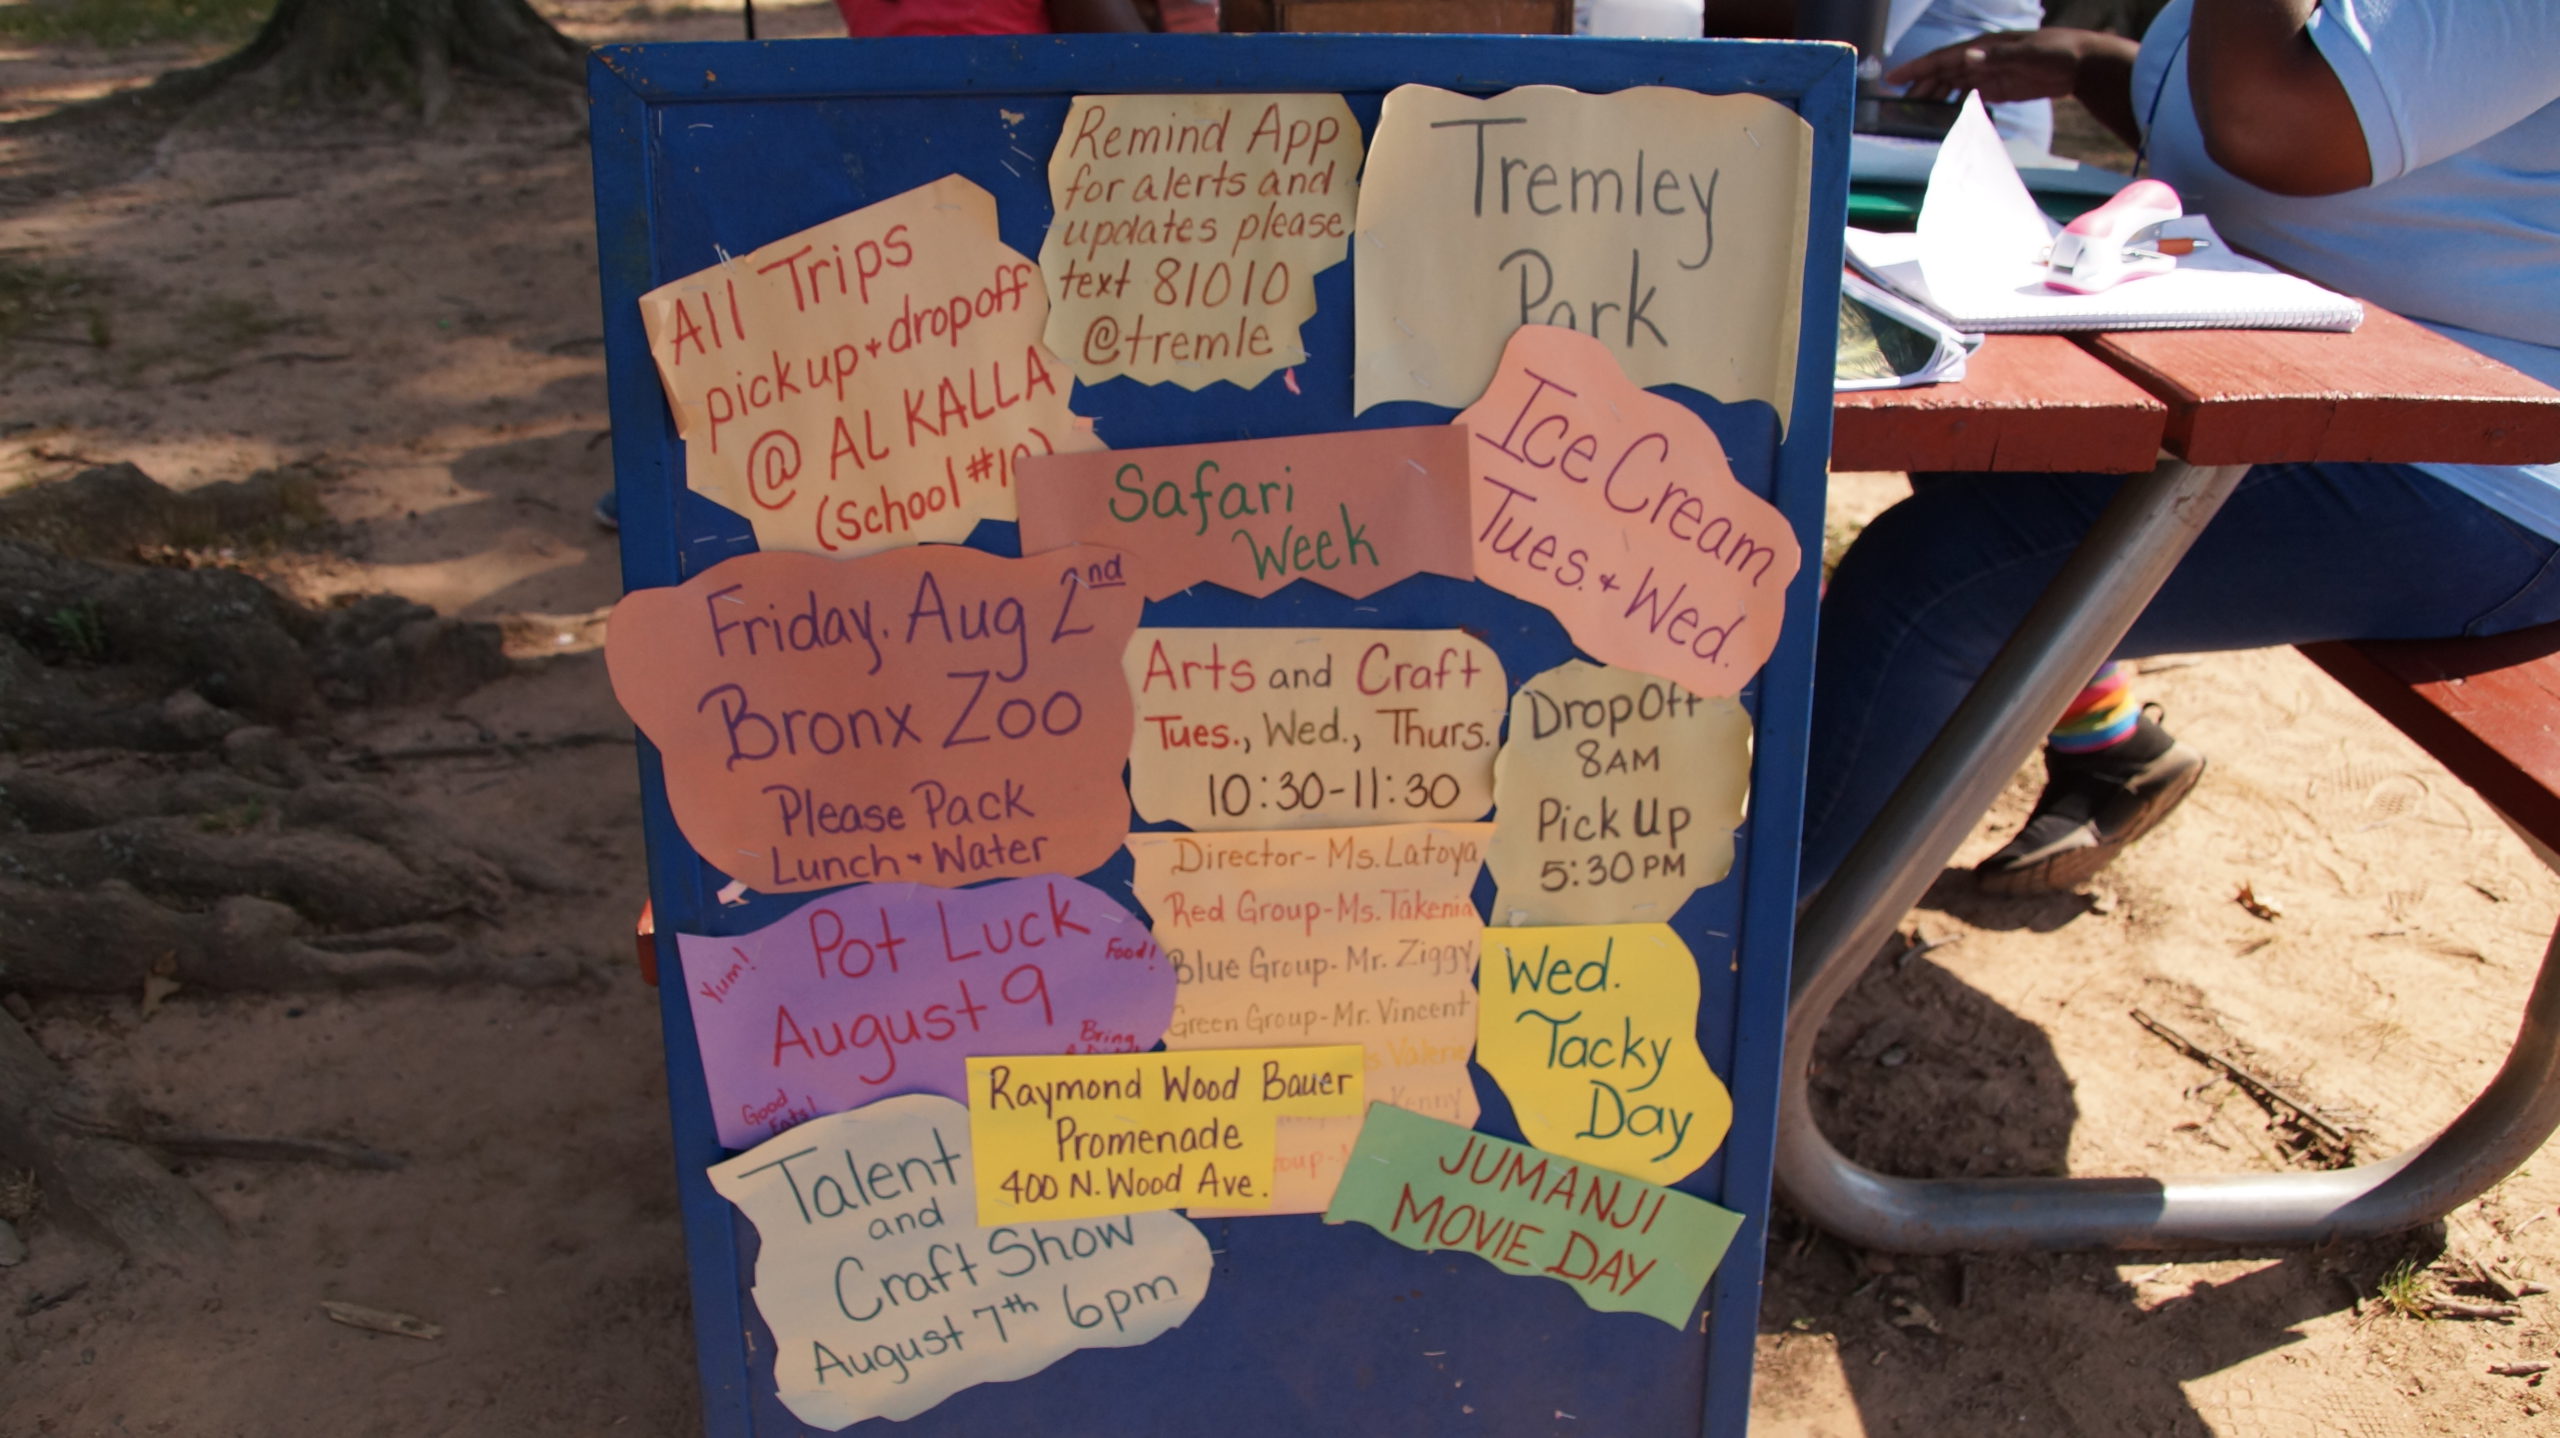 Tremley
Park
Remind App
for alerts and
updates please
text 81010
@tremle
All Trips
pickup + dropoff
@ AL KALLA
(School #10)
Safari
Week
Ice Cream
Tues. + Wed.
Friday, Aug 2nd
Bronx Zoo
Please Pack
Lunch + Water
Arts and Craft
Tues., Wed., Thurs.
10:30-11:30
Drop Off
8AM
Pick Up
5:30 PM
Director- Ms. Latoya
Red Group- Ms. Takenia
Blue Group- Mr. Ziggy
Green Group- Mr. Vincent
Kenny
Pot Luck
August 9
Yum!
Food!
Bring
Good
Eats!
Wed.
Tacky
Day
Raymond Wood Bauer
Promenade
400 N. Wood Ave.
Talent
and
Craft Show
August 7th 6pm
JUMANJI
MOVIE DAY